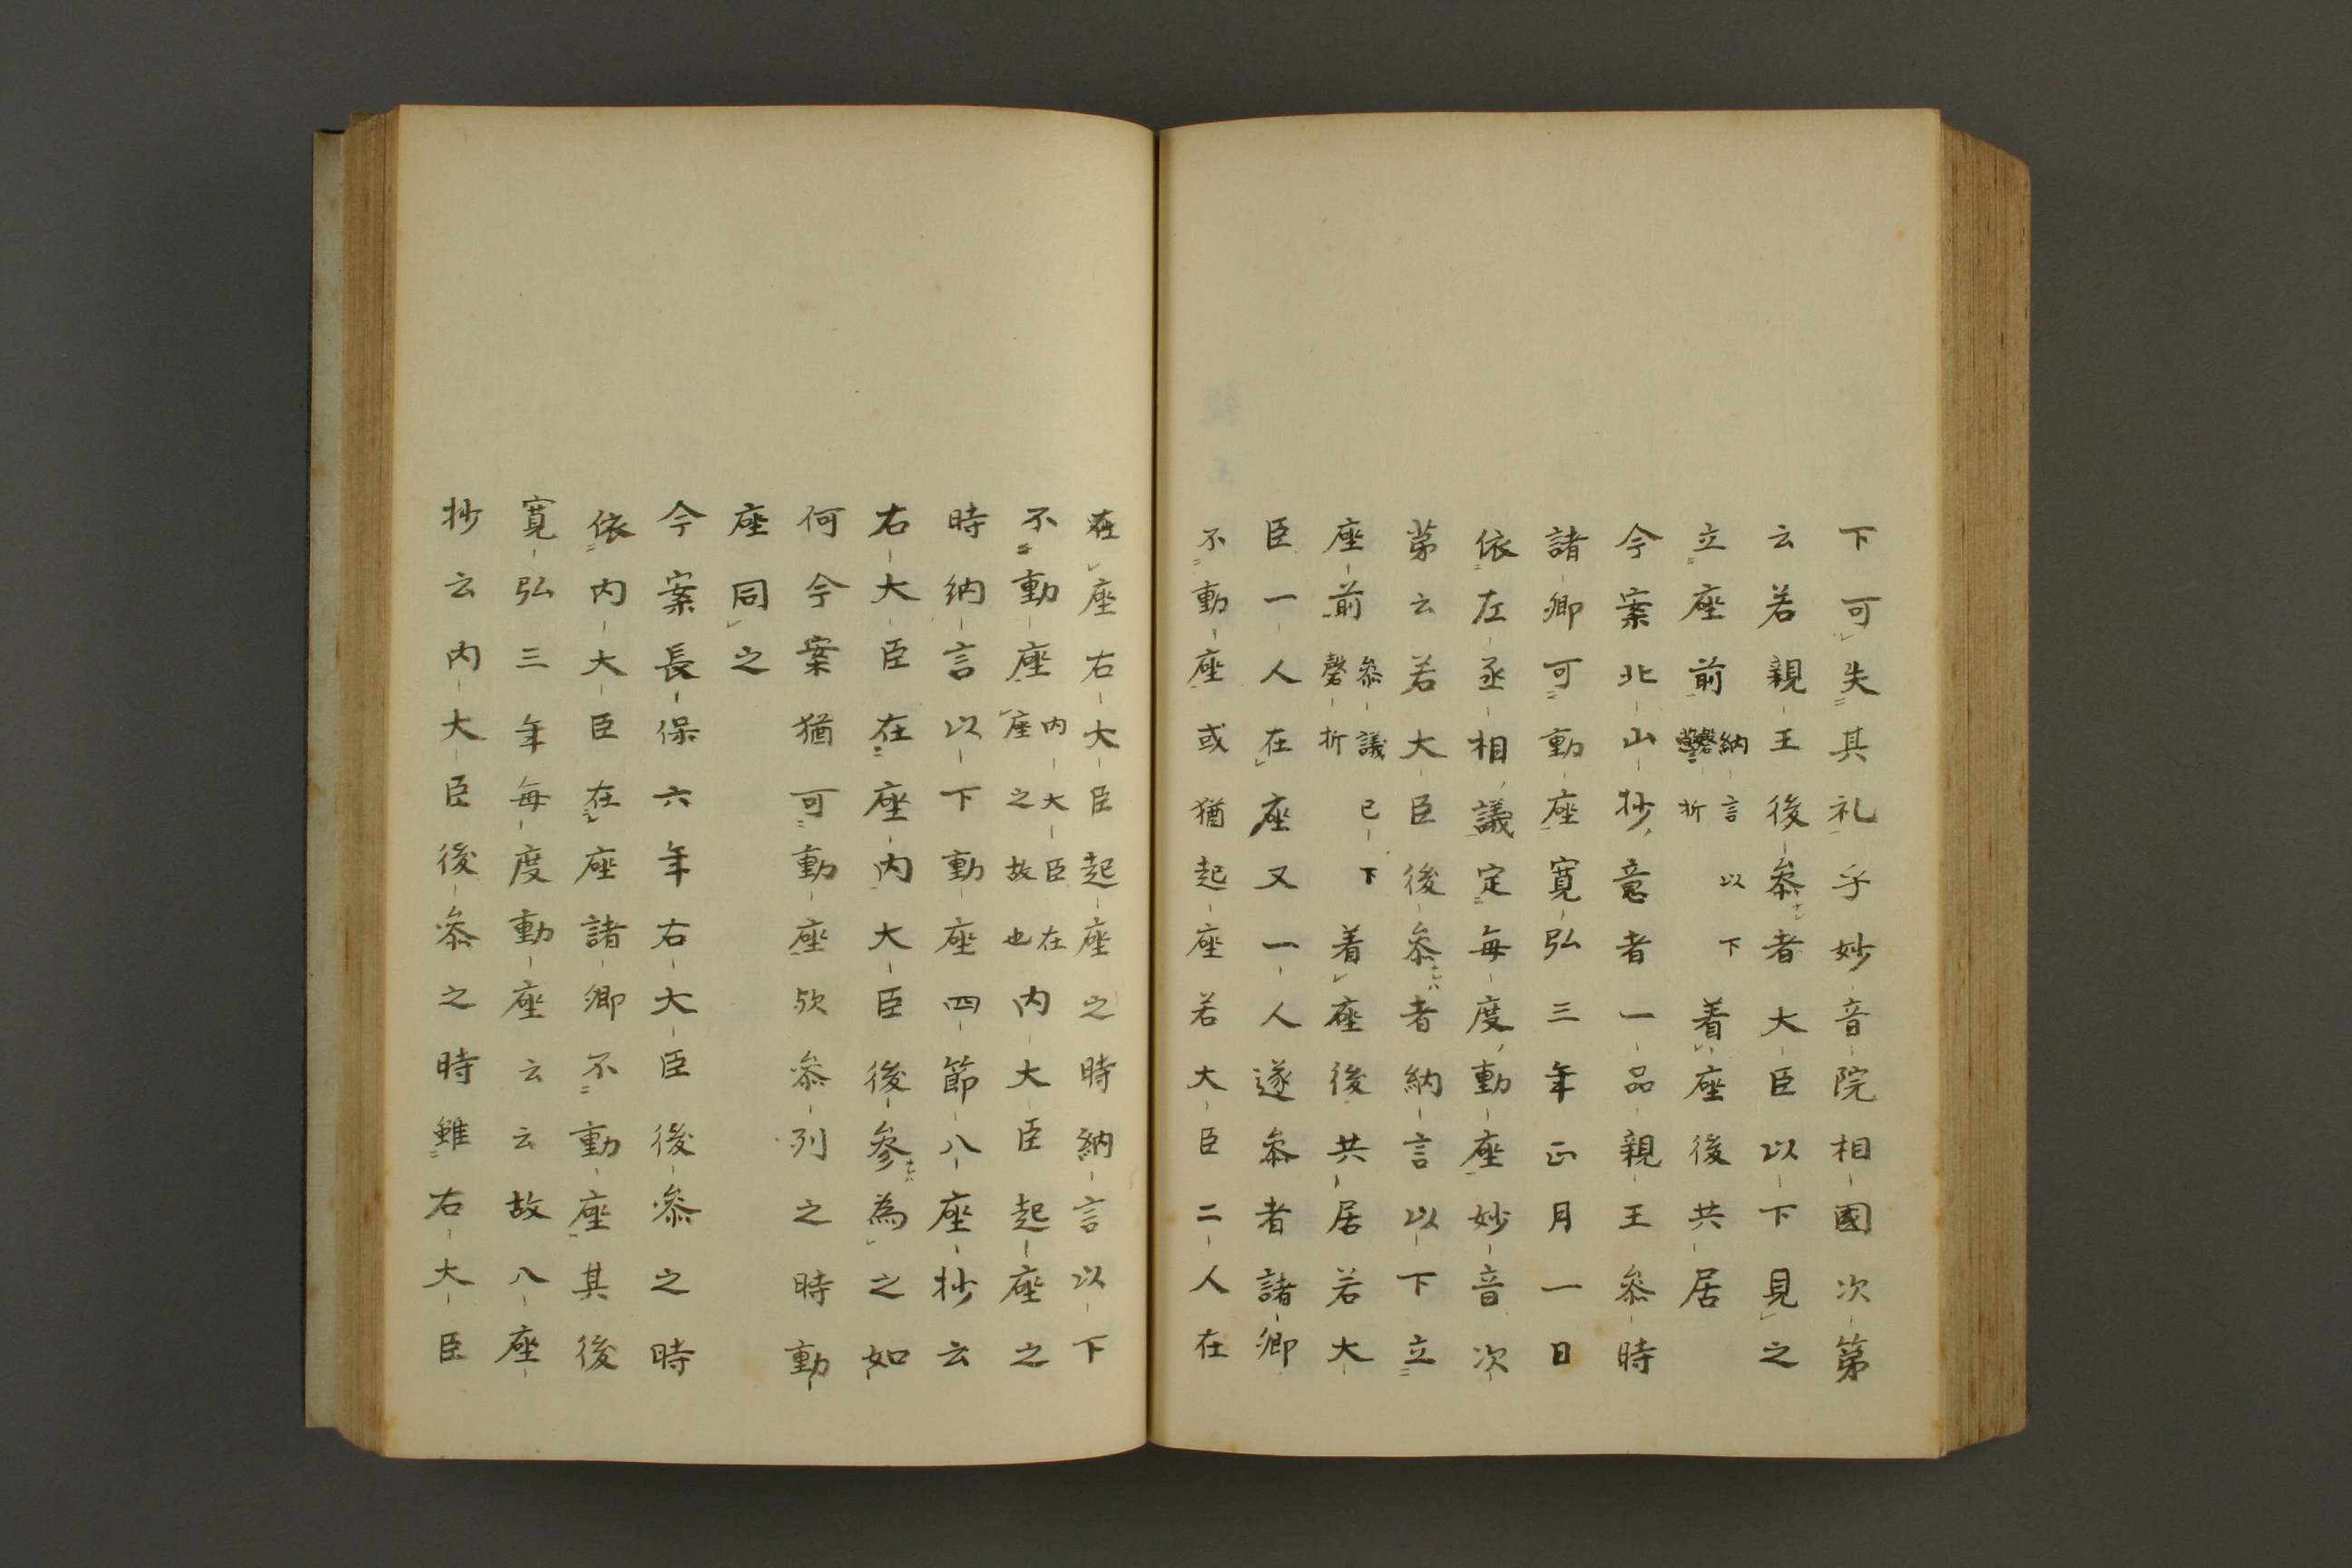 下可失其礼乎妙音院相國次第
云若親王後叅者大臣以下見之
立座前納言以下磬折着座後共居
今案北山抄意者一品親王叅時
諸卿可動座寛弘三年正月一日
依左丞相議定每度動座妙音次
第云若大臣後叅者納言以下立
座前叅議已下磬折着座後共居若大
臣一人在座又一人遂叅者諸卿
不動座或猶起座若大臣二人在
在座右大臣起座之時納言以下
不動座内大臣在座之故也内大臣起座之
時納言以下動座四節八座抄云
右大臣在座内大臣後參為之如
何今案猶可動座欤叅列之時動
座同之
今案長保六年右大臣後叅之時
依内大臣在座諸卿不動座其後
寛弘三年每度動座云云故八座
抄云内大臣後叅之時雖右大臣